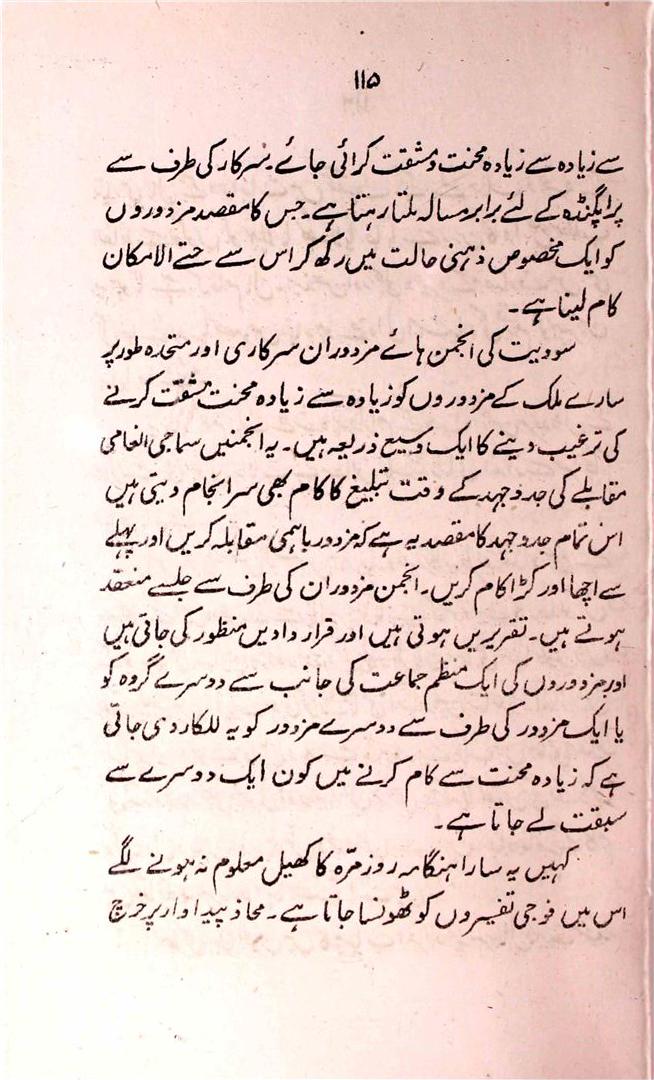 ۱۱۵
سے زیادہ سے زیادہ محنت و مشقت کرائی جائے۔ سرکار کی طرف سے
پراپگنڈہ کے لئے برابر مسالہ ملتا رہتا ہے۔ جس کا مقصد مزدوروں
کو ایک مخصوص ذہنی حالت میں رکھ کر اس سے حتے الامکان
کام لینا ہے۔
سوویت کی انجمن ہائے مزدوران سرکاری اور متحدہ طور پر
سارے ملک کے مزدوروں کو زیادہ سے زیادہ محنت مشقت کرنے
کی ترغیب دینے کا ایک وسیع ذریعہ ہیں۔ یہ انجمنیں سماجی انعامی
مقابلے کی جدوجہد کے وقت تبلیغ کا کام بھی سرانجام دیتی ہیں
اس تمام جدوجہد کا مقصد یہ ہے کہ مزدور باہمی مقابلہ کریں اور پہلے
سے اچھا اور کڑا کام کریں۔ انجمن مزدوران کی طرف سے جلسے منعقد
ہوتے ہیں۔ تقریریں ہوتی ہیں اور قرار دادیں منظور کی جاتی ہیں
اور مزدوروں کی ایک منظم جماعت کی جانب سے دوسرے گروہ کو
یا ایک مزدور کی طرف سے دوسرے مزدور کو یہ للکار دی جاتی
ہے کہ زیادہ محنت سے کام کرنے میں کون ایک دوسرے سے
سبقت لے جاتا ہے۔
کہیں یہ سارا ہنگامہ روزمرّہ کا کھیل معلوم نہ ہونے لگے
اس میں فوجی تفسیروں کو ٹھونسا جاتا ہے۔ محاذ پیداوار پر خرچ